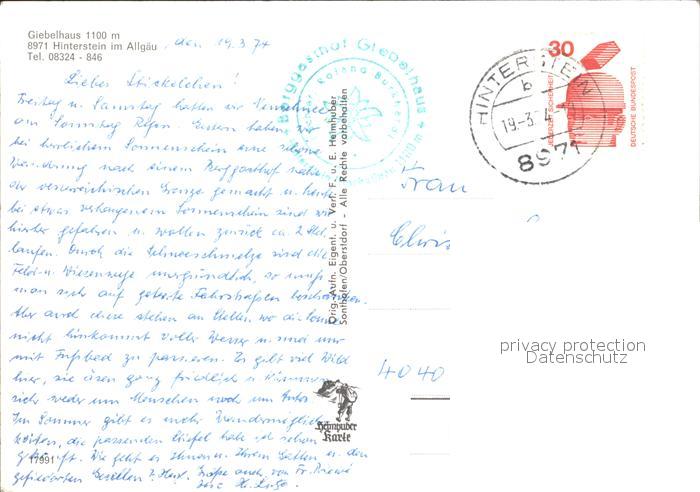 Giebelhaus 1100 m
8971 Hinterstein im Allgäu, den 19.3.74
Tel. 08324 - 846
Liebes Stückelchen!
Freitag u. Samstag hatten wir
am Sonntag Regen. Gestern haben wir
bei herrlichem Sonnenschein eine schöne
Wanderung nach einem Berggasthof nahe
der österreichischen Grenze gemacht u. heute
bei etwas verhangenem Sonnenschein sind wir
hierher gefahren u. wollen zurück ca. 2 Std.
laufen. Durch die Schneeschmelze sind alle
Feld- u. Wiesenwege unergründlich, so muß
man sich auf geteerte Fahrstraßen beschränken.
Aber auch diese stehen an Stellen, wo die Sonne
nicht hinkommt voller Wasser u. sind nur
mit Fußbad zu passieren. Es gibt viel Wild
hier, sie äsen ganz friedlich u. kümmern
sich weder um Menschen noch um Autos.
Im Sommer gibt es mehr Wandermöglich-
keiten, die passenden Stiefel habe ich schon
gekauft. Wie geht es Ihnen u. Ihrem Gatten u. den
gefiederten Gesellen? Herzl. Grüße auch von Fr.
Ihre H.
17991
Berggasthof Giebelhaus
Roland
1100 m
Orig.-Aufn. Eigent. u. Verl. F. u. E. Heimhuber
Sonthofen/Oberstdorf - Alle Rechte vorbehalten
Heimhuber
Karte
HINTERSTEIN
b
19.-3.74
8971
30
JEDERZEIT SICHERHEIT
DEUTSCHE BUNDESPOST
Frau
Chris
4040
privacy protection
Datenschutz